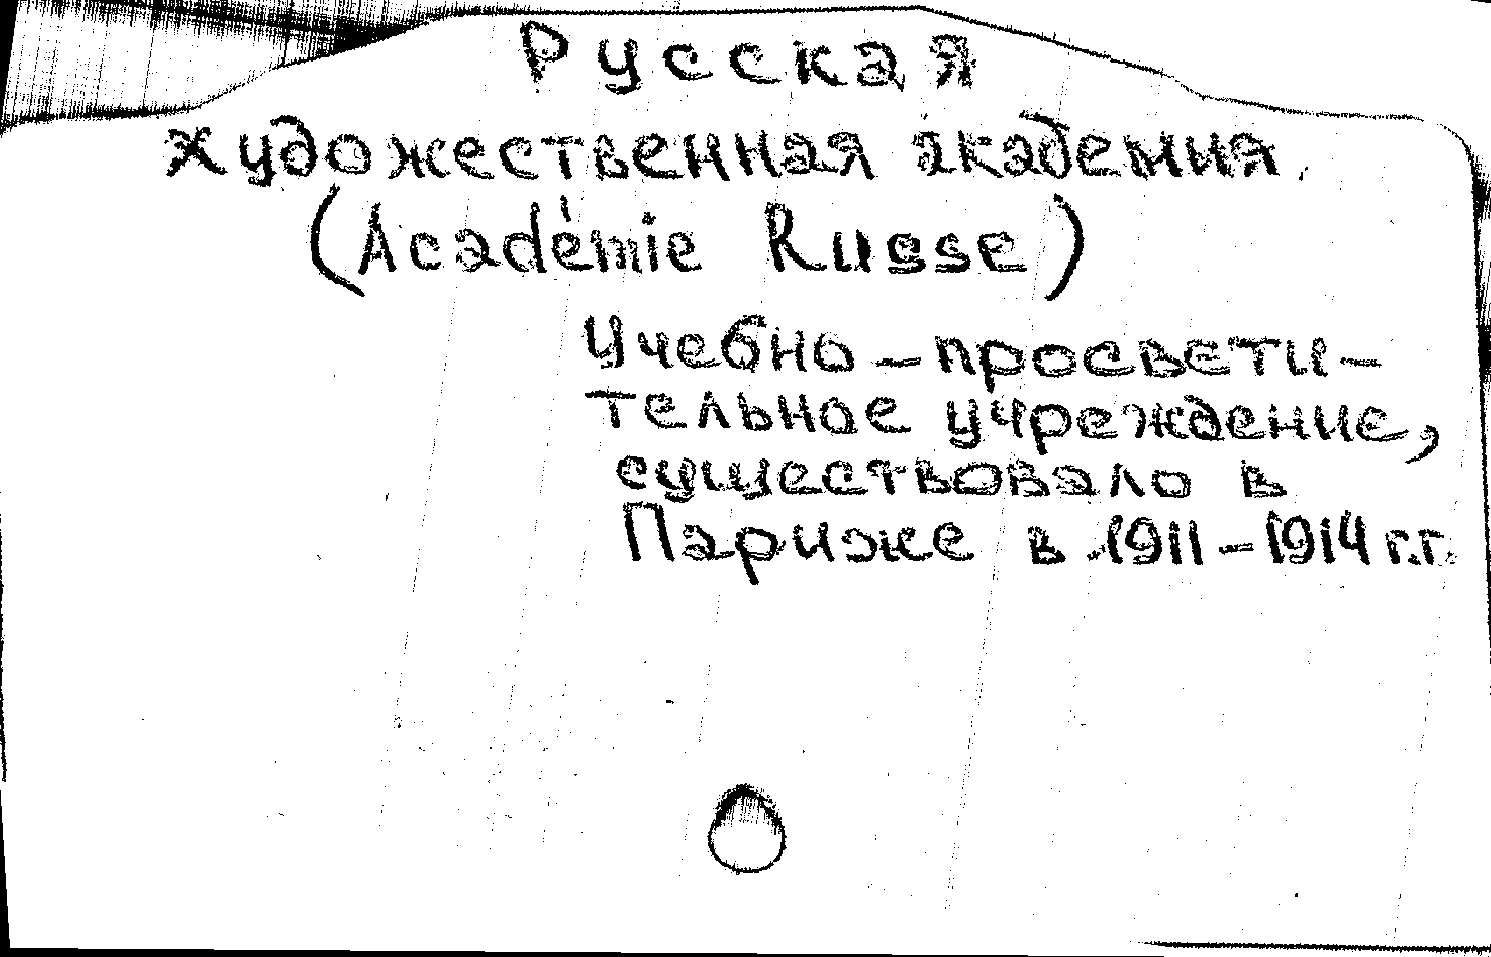 Русская
художественная академия.
(Académie Russe)
Учебно-просвети-
тельное учреждение,
существовало в
Париже в 1911-1914 г.г.